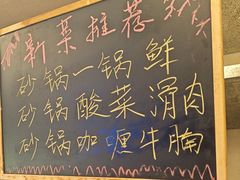 新菜推荐
砂锅一锅鲜
砂锅酸菜滑肉
砂锅咖喱牛腩